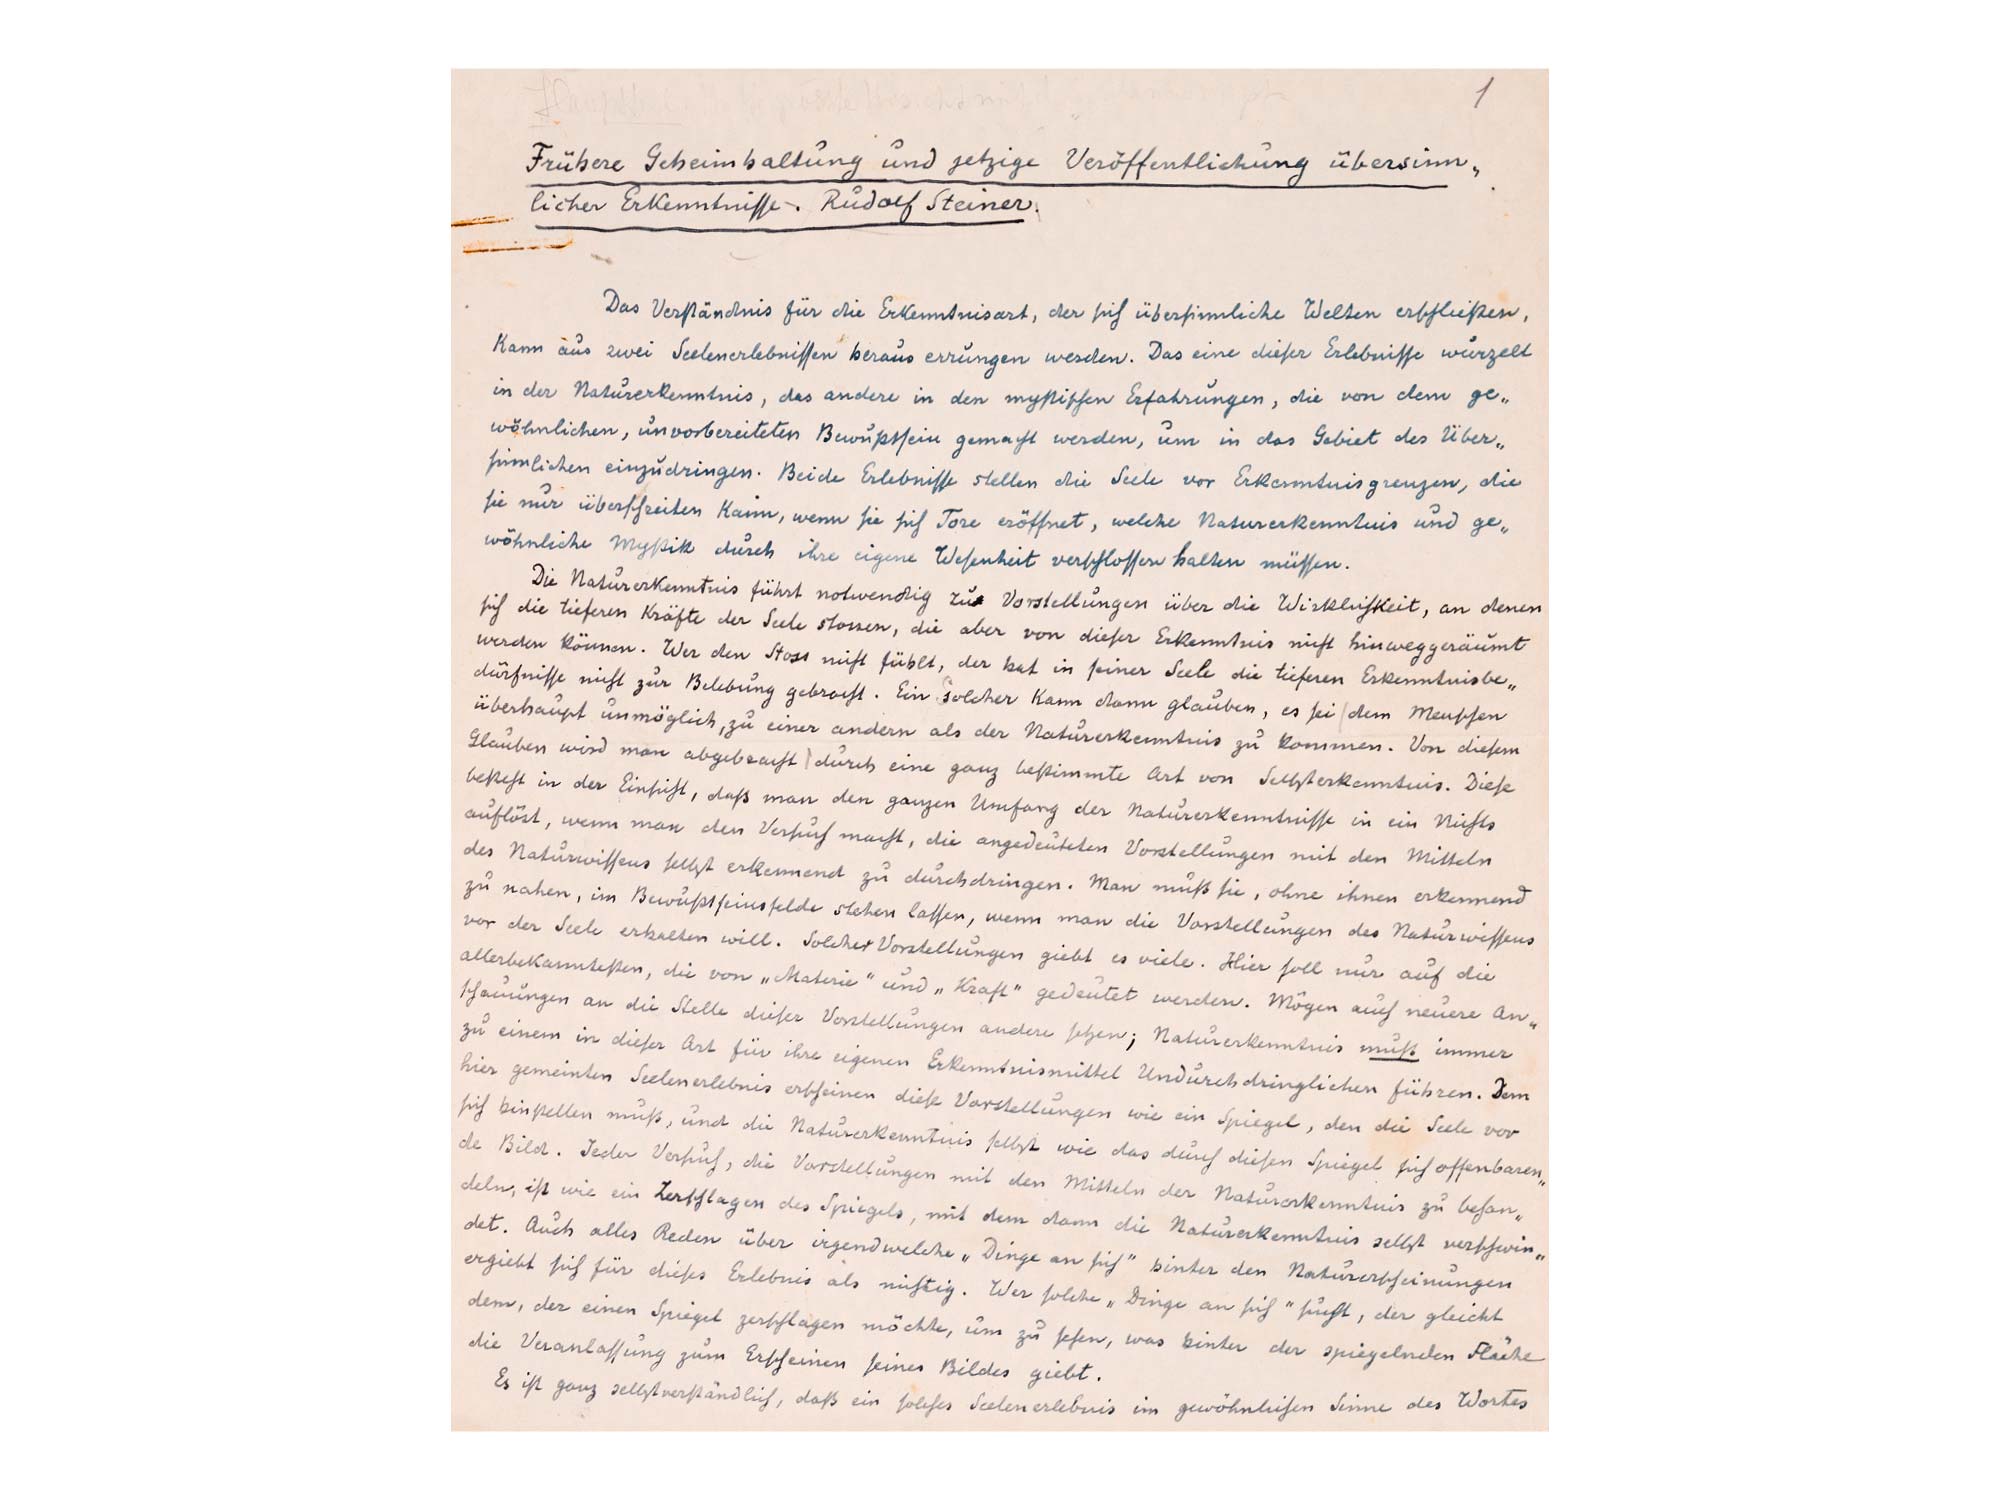 1
Frühere Geheimhaltung und jetzige Veröffentlichung übersinn„
licher Erkenntnisse. Rudolf Steiner.
Das Verständnis für die Erkenntnisart, der sich übersinnliche Welten erschließen,
kann aus zwei Seelenerlebnissen heraus errungen werden. Das eine dieser Erlebnisse wurzelt
in der Naturerkenntnis, das andere in den mystischen Erfahrungen, die von dem ge„
wöhnlichen, unvorbereiteten Bewußtsein gemacht werden, um in das Gebiet des Über„
sinnlichen einzudringen. Beide Erlebnisse stellen die Seele vor Erkenntnisgrenzen, die
sie nur überschreiten kann, wenn sie sich Tore eröffnet, welche Naturerkenntnis und ge„
wöhnliche Mystik durch ihre eigene Wesenheit verschlossen halten müssen.
Die Naturerkenntnis führt notwendig zu Vorstellungen über die Wirklichkeit, an denen
sich die tieferen Kräfte der Seele stossen, die aber von dieser Erkenntnis nicht hinweggeräumt
werden können. Wer den Stoss nicht fühlt, der hat in seiner Seele die tieferen Erkenntnisbe„
dürfnisse nicht zur Belebung gebracht. Ein solcher kann dann glauben, es sei dem Menschen
überhaupt unmöglich, zu einer andern als der Naturerkenntnis zu kommen. Von diesem
Glauben wird man abgebracht durch eine ganz bestimmte Art von Selbsterkenntnis. Diese
besteht in der Einsicht, daß man den ganzen Umfang der Naturerkenntnisse in ein Nichts
auflöst, wenn man den Versuch macht, die angedeuteten Vorstellungen mit den Mitteln
des Naturwissens selbst erkennend zu durchdringen. Man muß sie, ohne ihnen erkennend
zu nahen, im Bewußtseinsfelde stehen lassen, wenn man die Vorstellungen des Naturwissens
vor der Seele erhalten will. Solcher Vorstellungen giebt es viele. Hier soll nur auf die
allerbekanntesten, die von „Materie" und „Kraft" gedeutet werden. Mögen auch neuere An„
schauungen an die Stelle dieser Vorstellungen andere setzen; Naturerkenntnis muß immer
zu einem in dieser Art für ihre eigenen Erkenntnismittel Undurchdringlichen führen. Dem
hier gemeinten Seelenerlebnis erscheinen diese Vorstellungen wie ein Spiegel, den die Seele vor
sich hinstellen muß, und die Naturerkenntnis selbst wie das durch diesen Spiegel sich offenbaren„
de Bild. Jeder Versuch, die Vorstellungen mit den Mitteln der Naturerkenntnis zu behan„
deln, ist wie ein Zerschlagen des Spiegels, mit dem dann die Naturerkenntnis selbst verschwin„
det. Auch alles Reden über irgendwelche „Dinge an sich" hinter den Naturerscheinungen
ergiebt sich für dieses Erlebnis als nichtig. Wer solche „Dinge an sich" sucht, der gleicht
dem, der einen Spiegel zerschlagen möchte, um zu sehen, was hinter der spiegelnden Fläche
die Veranlassung zum Erscheinen seines Bildes giebt.
Es ist ganz selbstverständlich, daß ein solches Seelenerlebnis im gewöhnlichen Sinne des Wortes